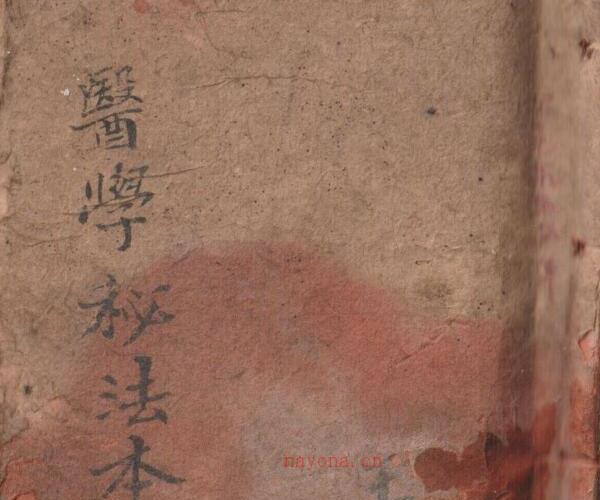 醫學秘法本
nayona.cn